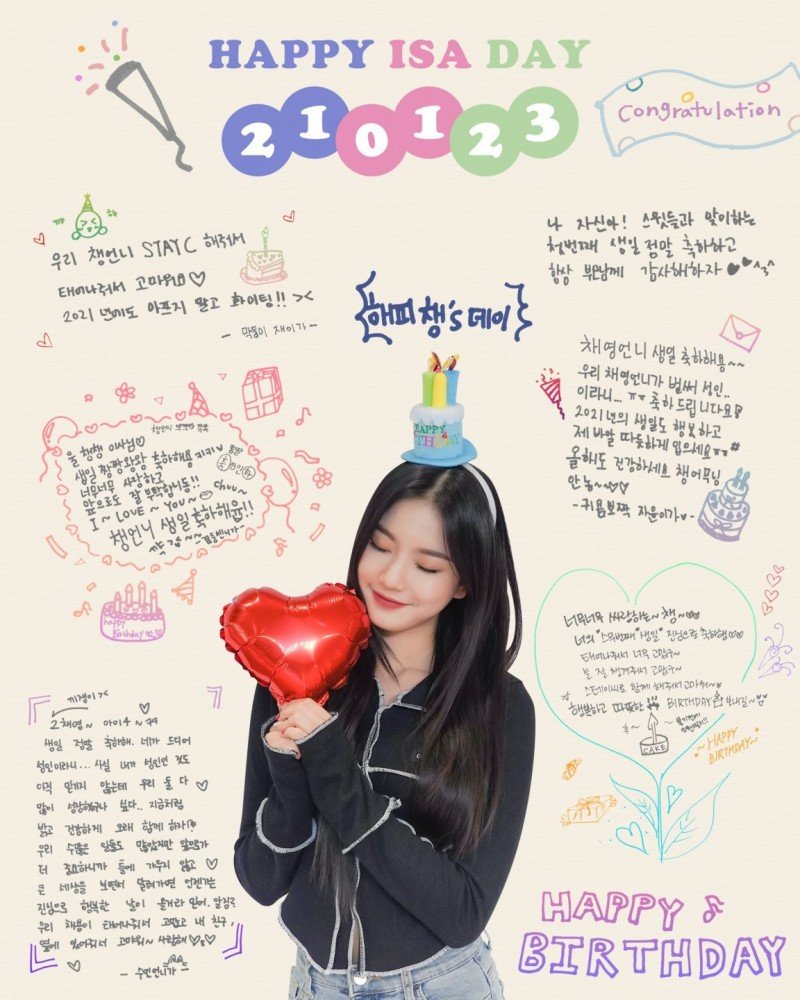 HAPPY ISA DAY
210123
Congratulation
우리 챙언니 STAYC 해줘서
태어나줘서 고마워요♡
2021년에도 아프지 말고 화이팅!! ><
- 막둥이 재이가 -
나 자신아! 스윗들과 맞이하는
첫번째 생일 정말 축하하고
항상 부모님께 감사해하자
해피 챙's 데이
HAPPY
채영언니 생일 축하해용~~
우리 채영언니가 벌써 성인..
이라니... ㅠㅠ 축하드립니다요
2021년의 생일도 행복하고
따뜻하게
올해도 건강하세요
- 귀욤뽀짝 자윤이가 -
울 챙챙 이사님♡
생일 짱짱 와왕 축하해용
너무너무 사랑하고
앞으로도 잘 부탁합니둥!!
I ~ LOVE ~ YOU ~
chuu~
챙언니 생일 축하해윰!!
happy
Birthday ♡♡
너무너무 싸랑하는~ 챙~♡♡
너의 "스무번째" 생일" 진심으로 축하행♡♡
태어나줘서 너무 고맙구~
늘 잘 챙겨줘서 고맙구~
스테이씨로 함께 해줘서 고마워~
행복하고 따뜻한 BIRTHDAY 보내길~
CAKE
~ HAPPY
BIRTHDAY ~
고채영~ 아이수~ ㅋㅋ
생일 정말 축하해. 네가 드디어
성인이라니... 사실 내가 성인인 것도
아직 믿기지 않는데 우리 둘 다
많이 성장했구나 싶다.. 지금처럼
밝고 건강하게 오래 함께 하자
우리 수많은 일들도 많았지만 앞으로가
더 중요하니까 틀에 가두지 않고 ♡
큰 세상을 보면서 달려가면 언젠가는
진심으로 행복한 날이 올거라 믿어.
우리 채영이 태어나줘서 고맙고 내 친구,
옆에 있어줘서 고마워~ 사랑해♡
- 수민언니가 -
HAPPY ♪
BIRTHDAY